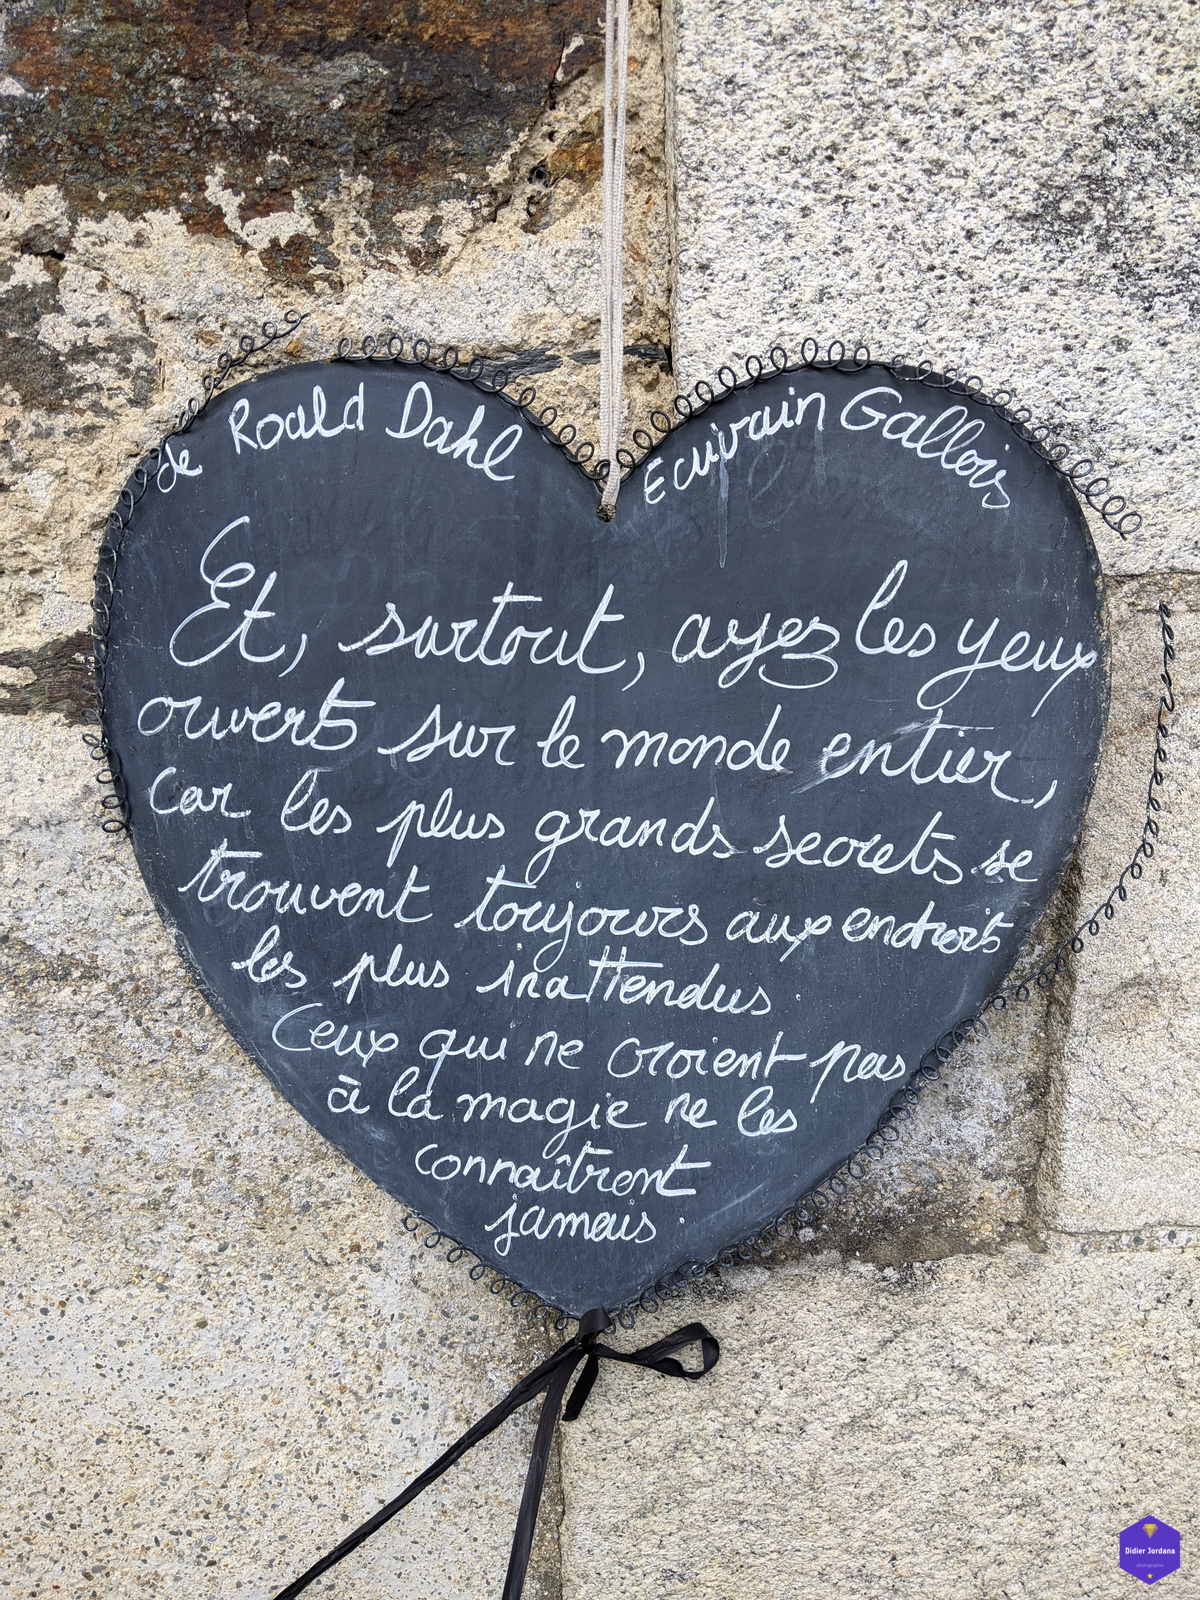 de Roald Dahl
Ecrivain Gallois
Et, surtout, ayez les yeux
ouverts sur le monde entier,
Car les plus grands secrets se
trouvent toujours aux endroits
les plus inattendus.
Ceux qui ne croient pas
à la magie ne les
connaîtront
jamais.
Didier Jordana
photographie